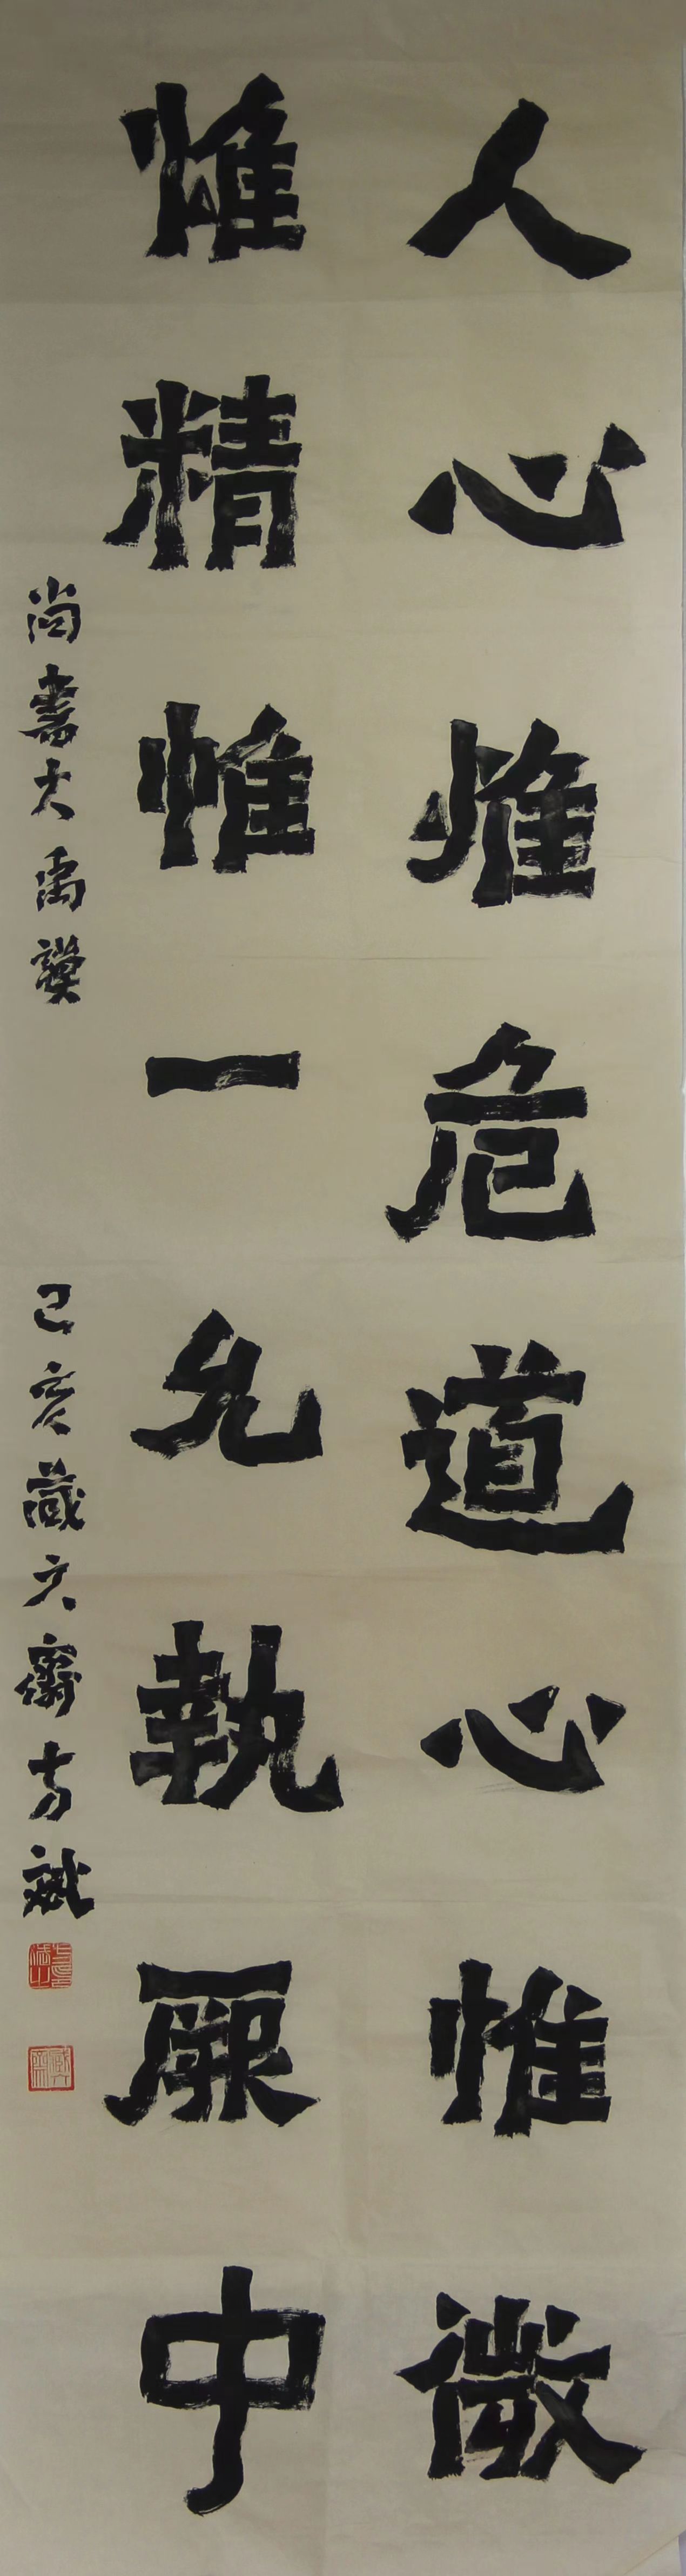 人心惟危道心惟微
惟精惟一允執厥中
尚書大禹謨 己亥藏六齋方斌